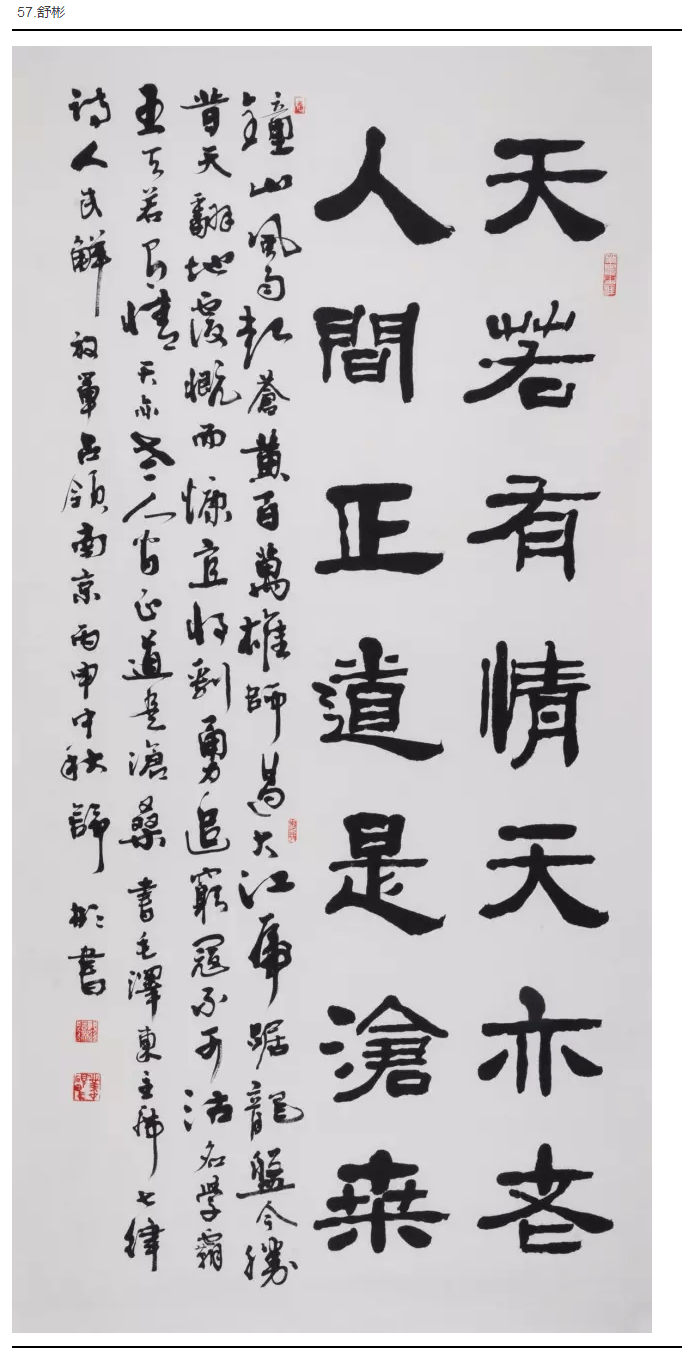 57.舒彬
天若有情天亦老
人間正道是滄桒
鐘山風雨起蒼黃百萬雄師過大江虎踞龍盤今勝
昔天翻地覆慨而慷宜將剩勇追窮寇不可沽名學霸
王天若有情天亦老人間正道是滄桑書毛澤東主席七律
詩人民解放軍占領南京丙申中秋節彬書